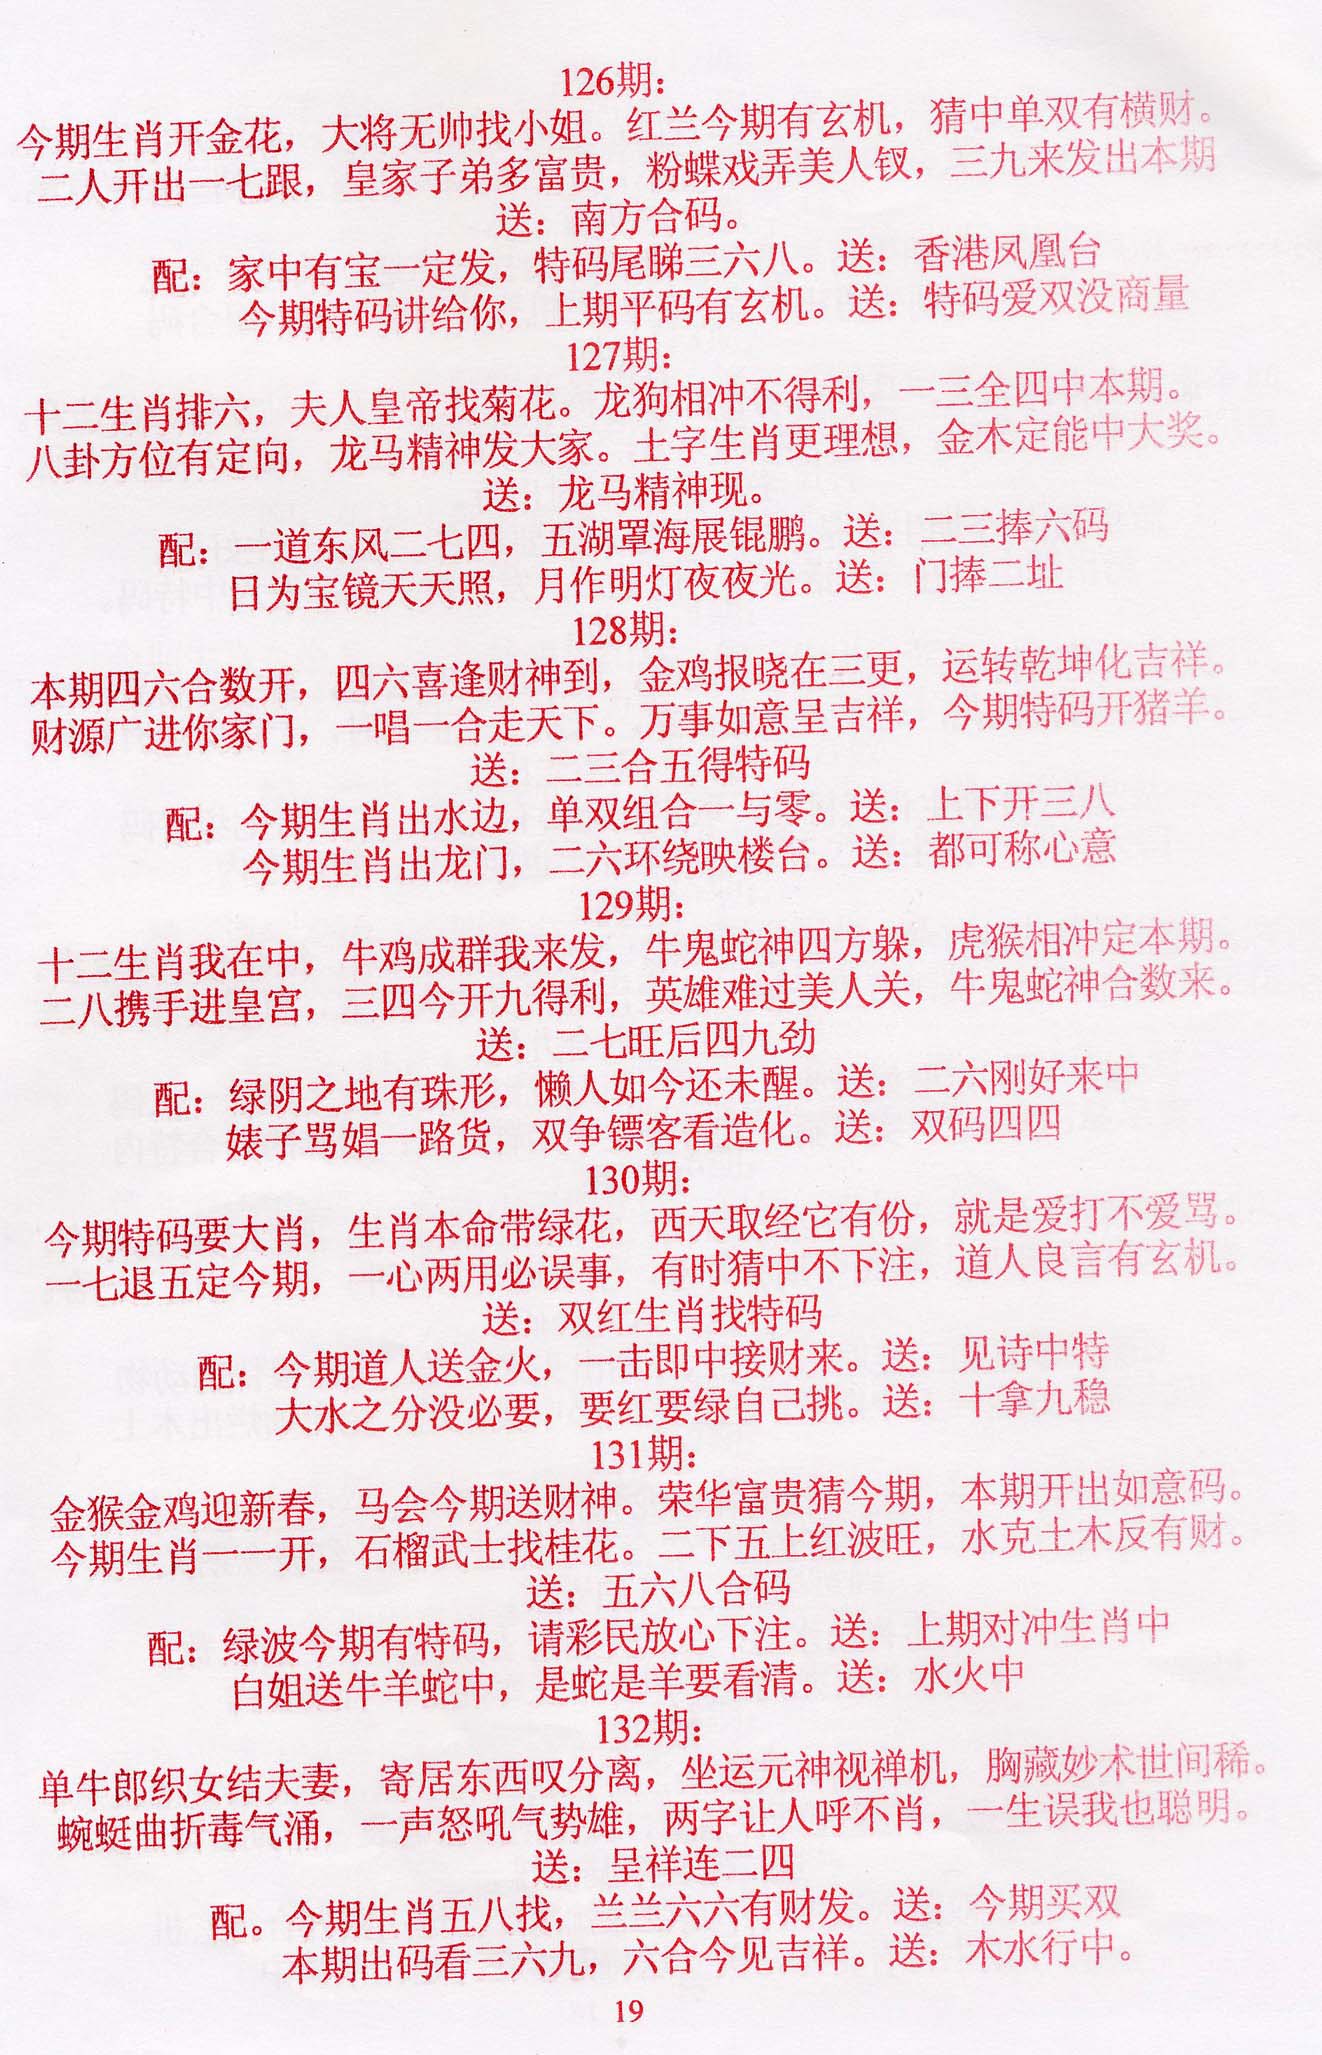 126期：
今期生肖开金花，大将无帅找小姐。红兰今期有玄机，猜中单双有横财。
二人开出一七跟，皇家子弟多富贵，粉蝶戏弄美人钗，三九来发出本期
送：南方合码。
配：家中有宝一定发，特码尾睇三六八。送：香港凤凰台
今期特码讲给你，上期平码有玄机。送：特码爱双没商量
127期：
十二生肖排六，夫人皇帝找菊花。龙狗相冲不得利，一三全四中本期。
八卦方位有定向，龙马精神发大家。土字生肖更理想，金木定能中大奖。
送：龙马精神现。
配：一道东风二七四，五湖罩海展锟鹏。送：二三捧六码
日为宝镜天天照，月作明灯夜夜光。送：门捧二址
128期：
本期四六合数开，四六喜逢财神到，金鸡报晓在三更，运转乾坤化吉祥。
财源广进你家门，一唱一合走天下。万事如意呈吉祥，今期特码开猪羊。
送：二三合五得特码
配：今期生肖出水边，单双组合一与零。送：上下开三八
今期生肖出龙门，二六环绕映楼台。送：都可称心意
129期：
十二生肖我在中，牛鸡成群我来发，牛鬼蛇神四方躲，虎猴相冲定本期。
二八携手进皇宫，三四今开九得利，英雄难过美人关，牛鬼蛇神合数来。
送：二七旺后四九劲
配：绿阴之地有珠形，懒人如今还未醒。送：二六刚好来中
婊子骂娼一路货，双争镖客看造化。送：双码四四
130期：
今期特码要大肖，生肖本命带绿花，西天取经它有份，就是爱打不爱骂。
一七退五定今期，一心两用必误事，有时猜中不下注，道人良言有玄机。
送：双红生肖找特码
配：今期道人送金火，一击即中接财来。送：见诗中特
大水之分没必要，要红要绿自己挑。送：十拿九稳
131期：
金猴金鸡迎新春，马会今期送财神。荣华富贵猜今期，本期开出如意码。
今期生肖一一开，石榴武士找桂花。二下五上红波旺，水克土木反有财。
送：五六八合码
配：绿波今期有特码，请彩民放心下注。送：上期对冲生肖中
白姐送牛羊蛇中，是蛇是羊要看清。送：水火中
132期：
单牛郎织女结夫妻，寄居东西叹分离，坐运元神视禅机，胸藏妙术世间稀。
蜿蜓曲折毒气涌，一声怒吼气势雄，两字让人呼不肖，一生误我也聪明。
送：呈祥连二四
配。今期生肖五八找，兰兰六六有财发。送：今期买双
本期出码看三六九，六合今见吉祥。送：木水行中。
19